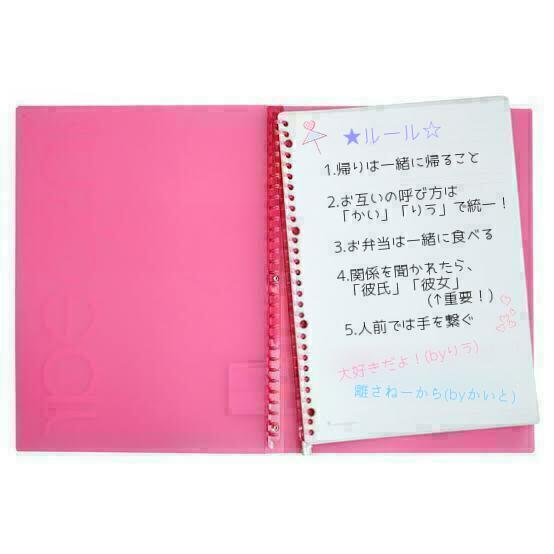 ★ルール☆
1.帰りは一緒に帰ること
2.お互いの呼び方は
「かい」「りう」で統一！
3.お弁当は一緒に食べる
4.関係を聞かれたら、
「彼氏」「彼女」
(↑重要！)
5.人前では手を繋ぐ
大好きだよ！(byりう)
離さねーから(byかいと)